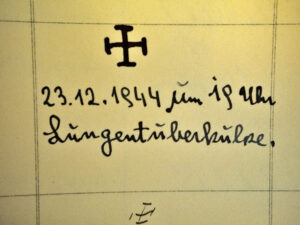 23.12.1944 um 19 Uhr
Lungentuberkulose.